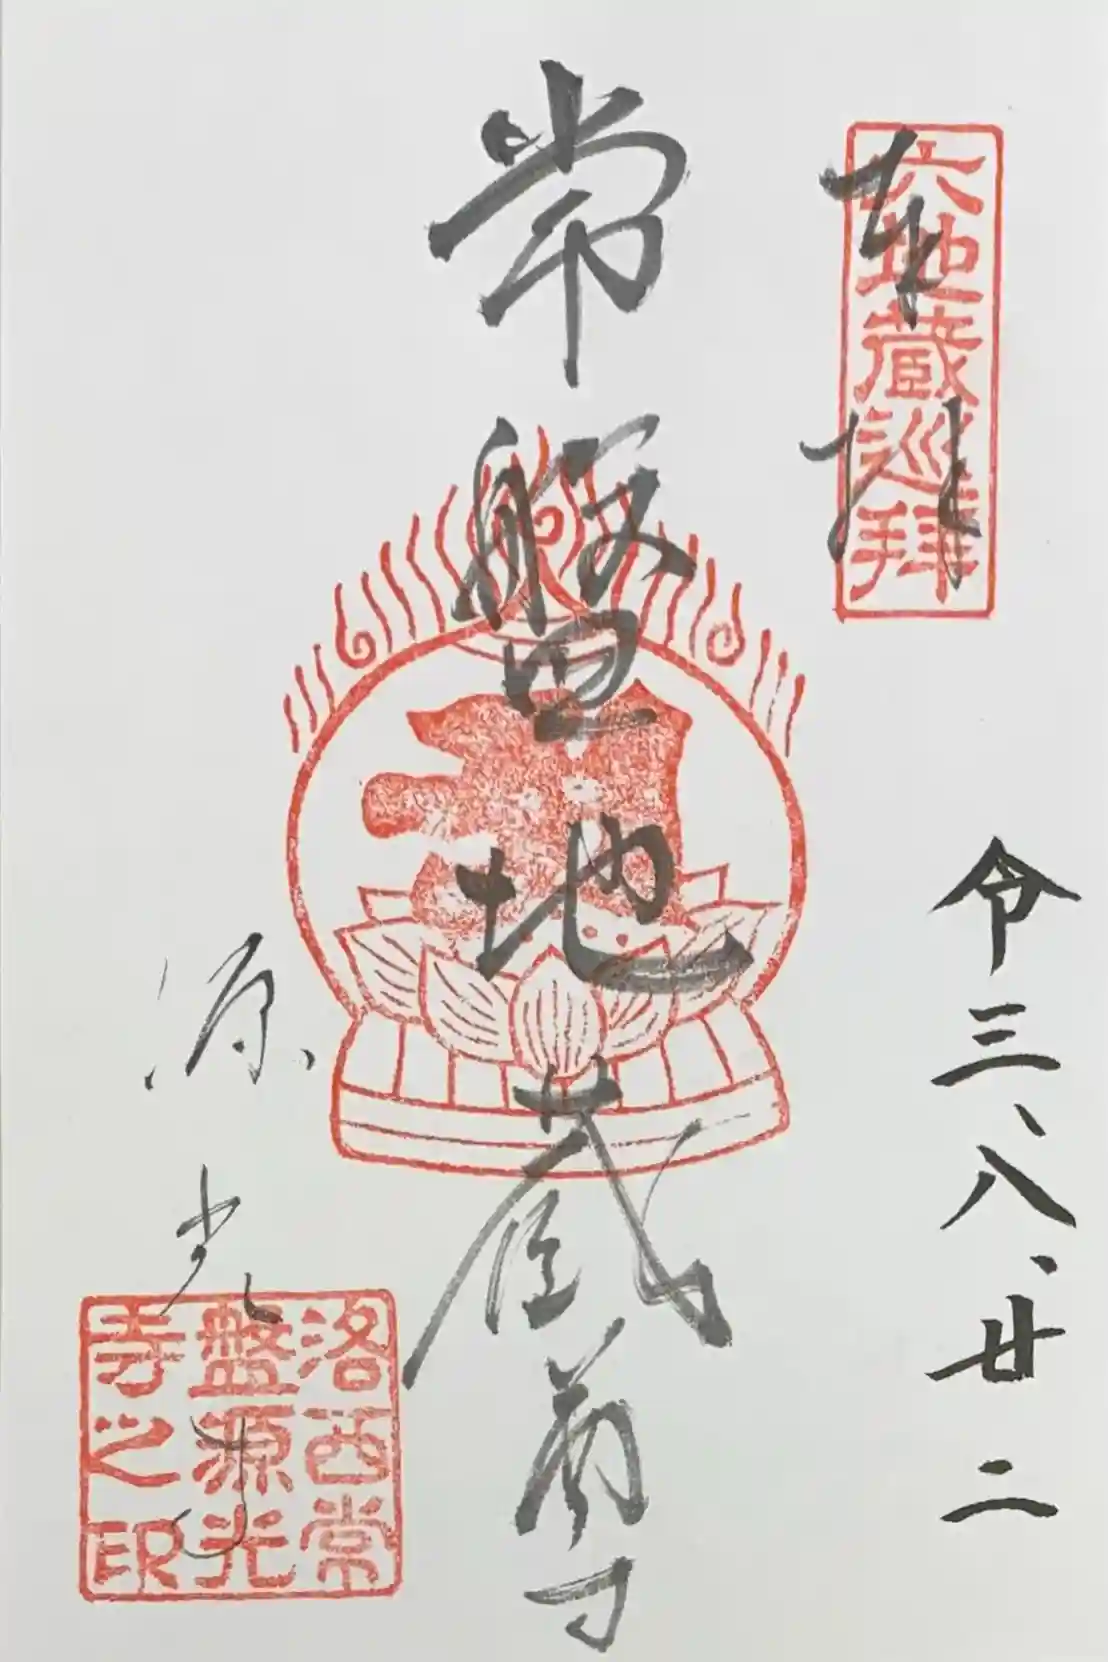 六地蔵巡拝
奉拝
令三、八、廿二
常盤地蔵尊
源光寺
洛西常
盤源光
寺之印